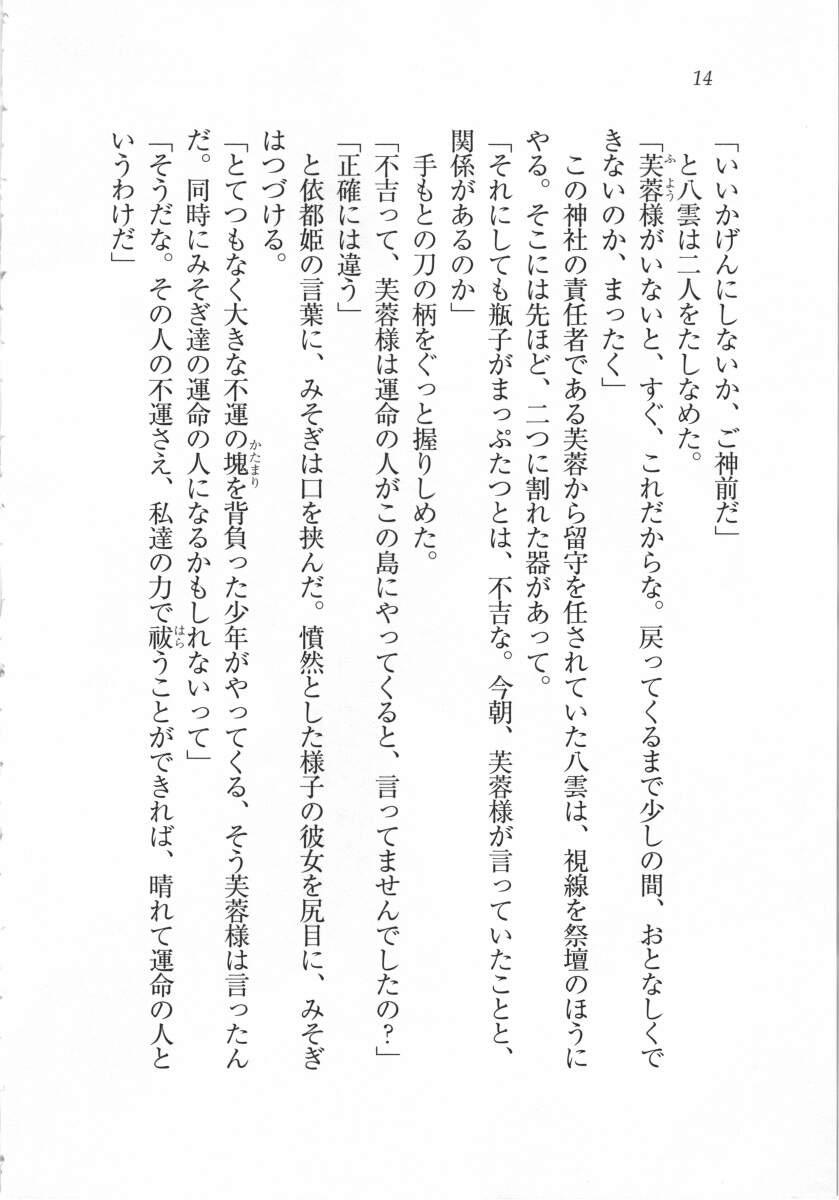 14
「いいかげんにしないか、ご神前だ」
　と八雲は二人をたしなめた。
「芙蓉様がいないと、すぐ、これだからな。戻ってくるまで少しの間、おとなしくで
きないのか、まったく」
　この神社の責任者である芙蓉から留守を任されていた八雲は、視線を祭壇のほうに
やる。そこには先ほど、二つに割れた器があって。
「それにしても瓶子がまっぷたつとは、不吉な。今朝、芙蓉様が言っていたことと、
関係があるのか」
　手もとの刀の柄をぐっと握りしめた。
「不吉って、芙蓉様は運命の人がこの島にやってくると、言ってませんでしたの？」
「正確には違う」
　と依都姫の言葉に、みそぎは口を挟んだ。憤然とした様子の彼女を尻目に、みそぎ
はつづける。
「とてつもなく大きな不運の塊を背負った少年がやってくる、そう芙蓉様は言ったん
だ。同時にみそぎ達の運命の人になるかもしれないって」
「そうだな。その人の不運さえ、私達の力で祓うことができれば、晴れて運命の人と
いうわけだ」